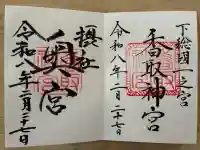 下総國一之宮
香取神宮
令和八年二月二十七日
摂社
奥宮
令和八年二月二十七日